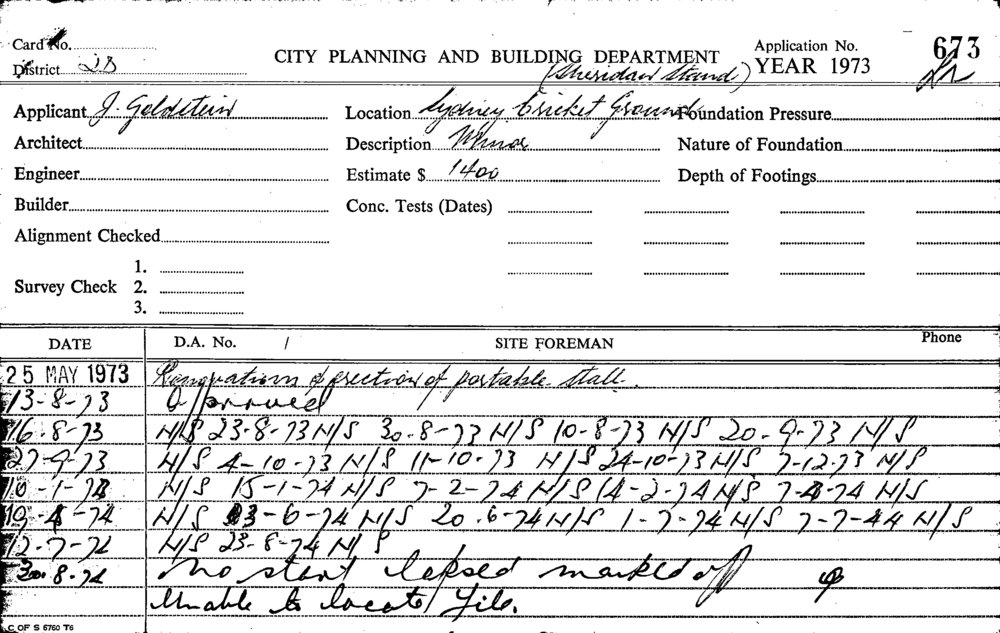 Card No.
CITY PLANNING AND BUILDING DEPARTMENT
Application No. 673
District 2B
(Sheridan Stand) YEAR 1973
Applicant J. Goldstein Location Sydney Cricket Ground Foundation Pressure
Architect Description Minor Nature of Foundation
Engineer Estimate $ 1400 Depth of Footings
Builder Conc. Tests (Dates)
Alignment Checked
1.
Survey Check 2.
3.
DATE D.A. No. / SITE FOREMAN Phone
25 MAY 1973 & erection of portable stall.
13-8-73 Approved
16-8-73 N/S 23-8-73 N/S 30-8-73 N/S 10-8-73 N/S 20-9-73 N/S
27-9-73 N/S 4-10-73 N/S 11-10-73 N/S 24-10-73 N/S 7-12-73 N/S
10-1-74 N/S 15-1-74 N/S 7-2-74 N/S 14-2-74 N/S 7-4-74 N/S
19-4-74 N/S 13-6-74 N/S 20-6-74 N/S 1-7-74 N/S 7-7-44 N/S
12-7-74 N/S 23-8-74 N/S
30-8-74 No start lapsed marked off
Unable to locate file.
C OF S 6760 T6